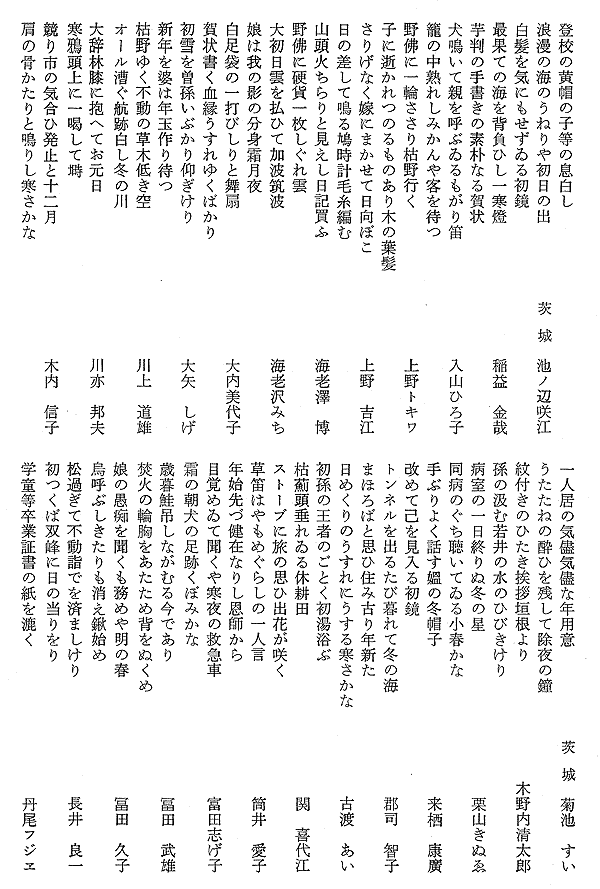 登校の黄帽の子等の息白し
浪漫の海のうねりや初日の出
茨城 池ノ辺咲江
白髪を気にもせずゐる初鏡
最果ての海を背負ひし一寒燈
稲益 金哉
芋判の手書きの素朴なる賀状
犬鳴いて親を呼ぶゐるもがり笛
入山ひろ子
籠の中熟れしみかんや客を待つ
野佛に一輪ささり枯野行く
上野トキワ
子に逝かれつのるものあり木の葉髪
さりげなく嫁にまかせて日向ぼこ
上野 吉江
日の差して鳴る鳩時計毛糸編む
山頭火ちらりと見えし日記買ふ
海老澤 博
野佛に硬貨一枚しぐれ雲
大初日雲を払ひて加波筑波
海老沢みち
娘は我の影の分身霜月夜
白足袋の一打びしりと舞扇
大内美代子
賀状書く血縁うすれゆくばかり
初雪を曽孫いぶかり仰ぎけり
大矢 しげ
新年を婆は年玉作り待つ
枯野ゆく不動の草木低き空
川上 道雄
オール漕ぐ航跡白し冬の川
大辞林膝に抱へてお元日
川亦 邦夫
寒鴉頭上に一喝して畤
競り市の気合ひ発止と十二月
木内 信子
肩の骨かたりと鳴りし寒さかな
一人居の気儘気儘な年用意
茨城 菊池 すい
うたたねの酔ひを残して除夜の鐘
紋付きのひたき挨拶垣根より
木野内清太郎
孫の汲む若井の水のひびきけり
病室の一日終りぬ冬の星
栗山きぬゑ
同病のぐち聴いてゐる小春かな
手ぶりよく話す媼の冬帽子
来栖 康廣
改めて己を見入る初鏡
トンネルを出るたび暮れて冬の海
郡司 智子
まほろばと思ひ住み古り年新た
日めくりのうすれにうする寒さかな
古渡 あい
初孫の王者のごとく初湯浴ぶ
枯薊頭垂れゐる休耕田
関 喜代江
ストーブに旅の思ひ出花が咲く
草笛はやもめぐらしの一人言
筒井 愛子
年始先づ健在なりし恩師から
目覚めゐて聞くや寒夜の救急車
富田志げ子
霜の朝犬の足跡くぼみかな
歳暮鮭吊しながむる今であり
冨田 武雄
焚火の輪胸をあたため背をぬくめ
娘の愚痴を聞くも務めや明の春
冨田 久子
烏呼ぶしきたりも消え鍬始め
松過ぎて不動詣でを済ましけり
長井 良一
初つくば双峰に日の当りをり
学童等卒業証書の紙を漉く
丹尾フジヱ